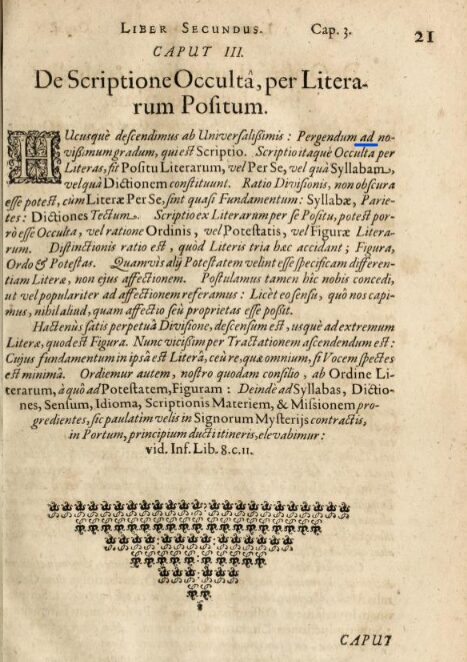 LIBER SECUNDUS. Cap. 3. 21
CAPUT III.
De Scriptione Occultâ, per Litera-
rum Positum.
HUcusquè descendimus ab Universalißimis : Pergendum ad no-
vißimum gradum, qui est Scriptio. Scriptio itaquè Occulta per
Literas, fit Positu Literarum, vel Per Se, vel quà Syllabam,
vel quà Dictionem constituunt. Ratio Divisionis, non obscura
esse potest, cùm Literæ Per Se, sint quasi Fundamentum: Syllabæ, Parie-
tes: Dictiones Tectum. Scriptio ex Literarum per se Positu, potest por-
rò esse Occulta, vel ratione Ordinis, vel Potestatis, vel Figuræ Litera-
rum. Distinctionis ratio est, quòd Literis tria hæc accidant; Figura,
Ordo & Potestas. Quamvis alij Potestatem velint esse specificam differen-
tiam Literæ, non ejus affectionem. Postulamus tamen hic nobis concedi,
ut vel populariter ad affectionem referamus: Licèt eo sensu, quo nos capi-
mus, nihil aliud, quam affectio seù proprietas esse poßit.
Hactenùs satis perpetuâ Divisione, descensum est, usquè ad extremum
Literæ, quod est Figura. Nunc vicißim per Tractationem ascendendum est:
Cujus fundamentum in ipsâ est Literâ, ceù re, quæ omnium, si Vocem spectes
est minima. Ordiemur autem, nostro quodam consilio, ab Ordine Li-
terarum, à quò ad Potestatem, Figuram : Deindè ad Syllabas, Dictio-
nes, Sensum, Idioma, Scriptionis Materiem, & Missionem pro-
gredientes, sic paulatim velis in Signorum Mysterijs contractis,
in Portum, principium ducti itineris, elevabimur:
vid. Inf. Lib. 8. c. 11.
CAPUT